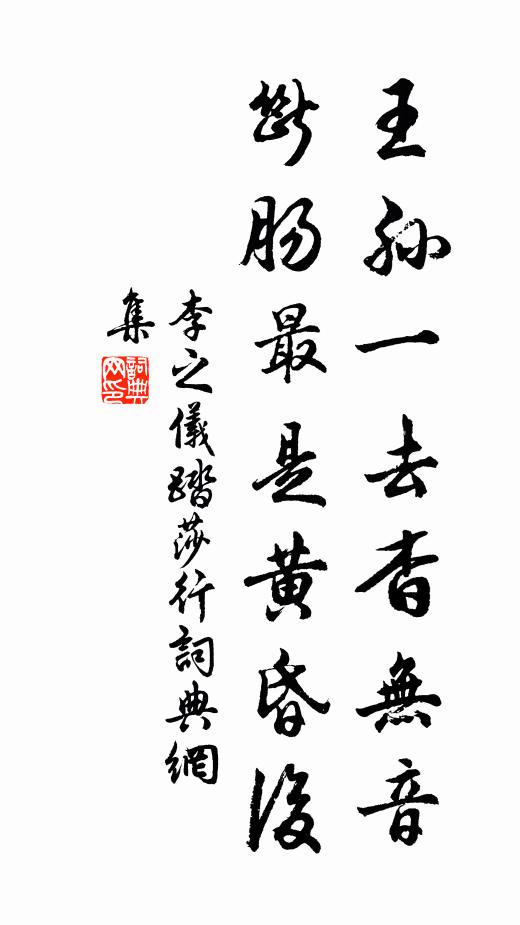 王孫一去杳無音
斷腸最是黃昏後
李之儀踏莎行詞典網
集
詞典
网印